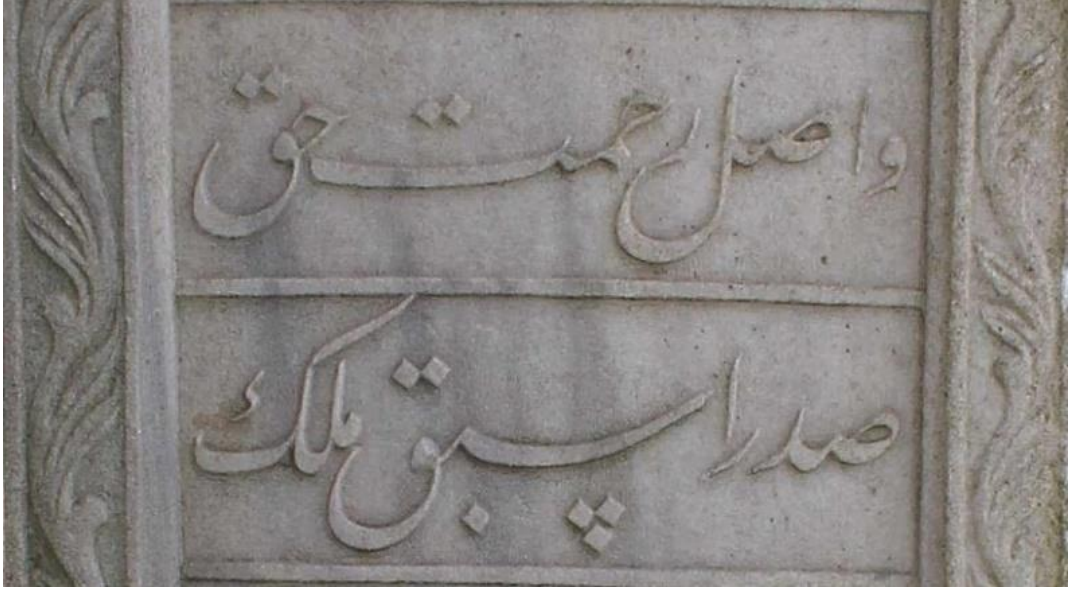 واصل رحمت حق
صدر اسبق ملك